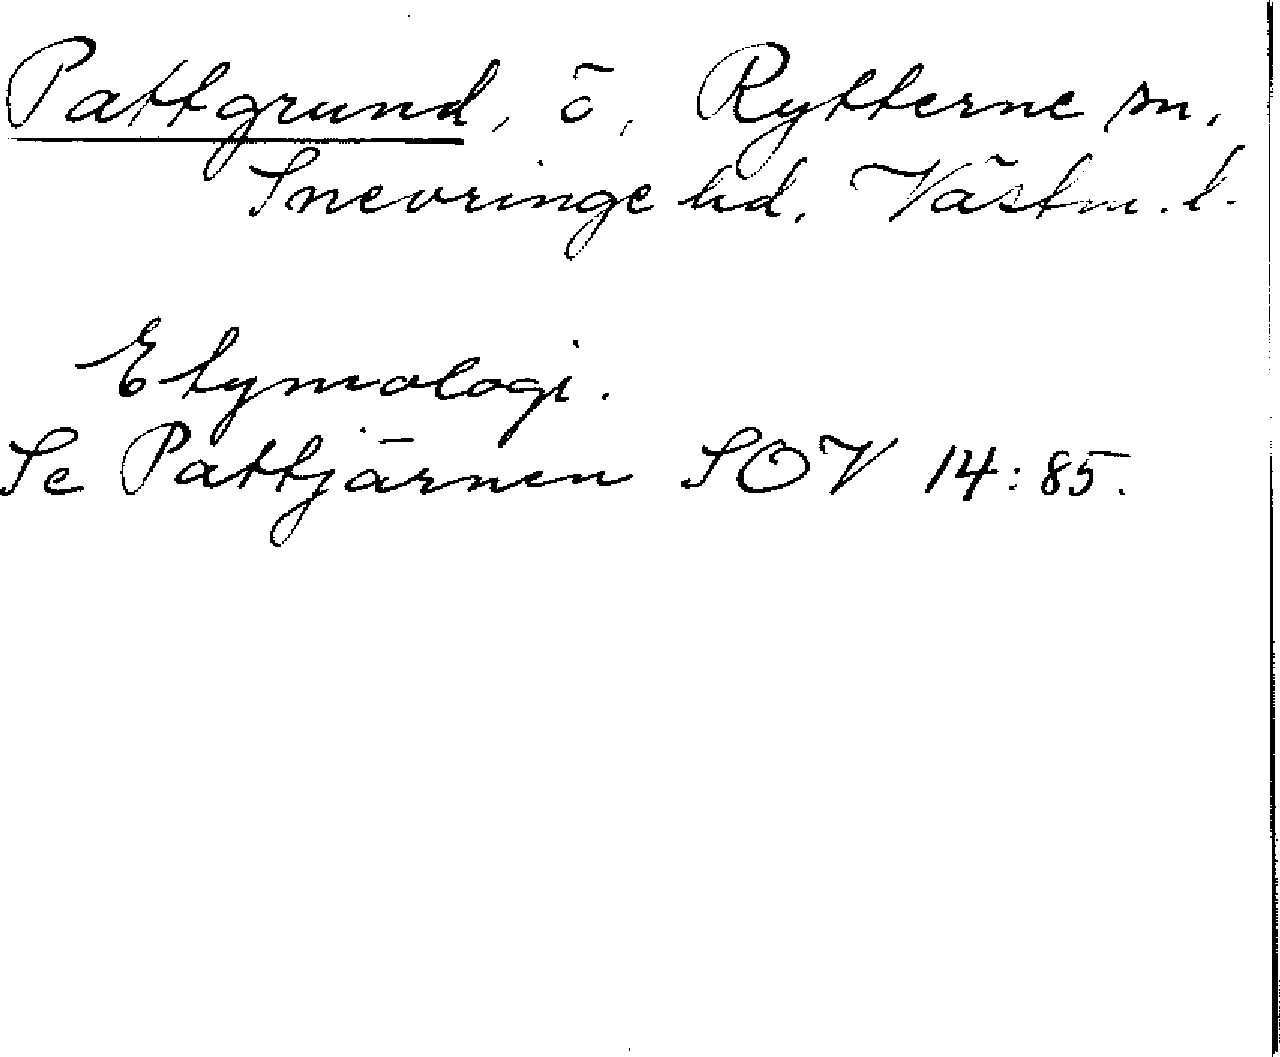 Pattgrund, ö, Rytterne sn,
Snevringe hd, Västm. l.
Etymologi.
Se Pattjärnen SOV 14:85.